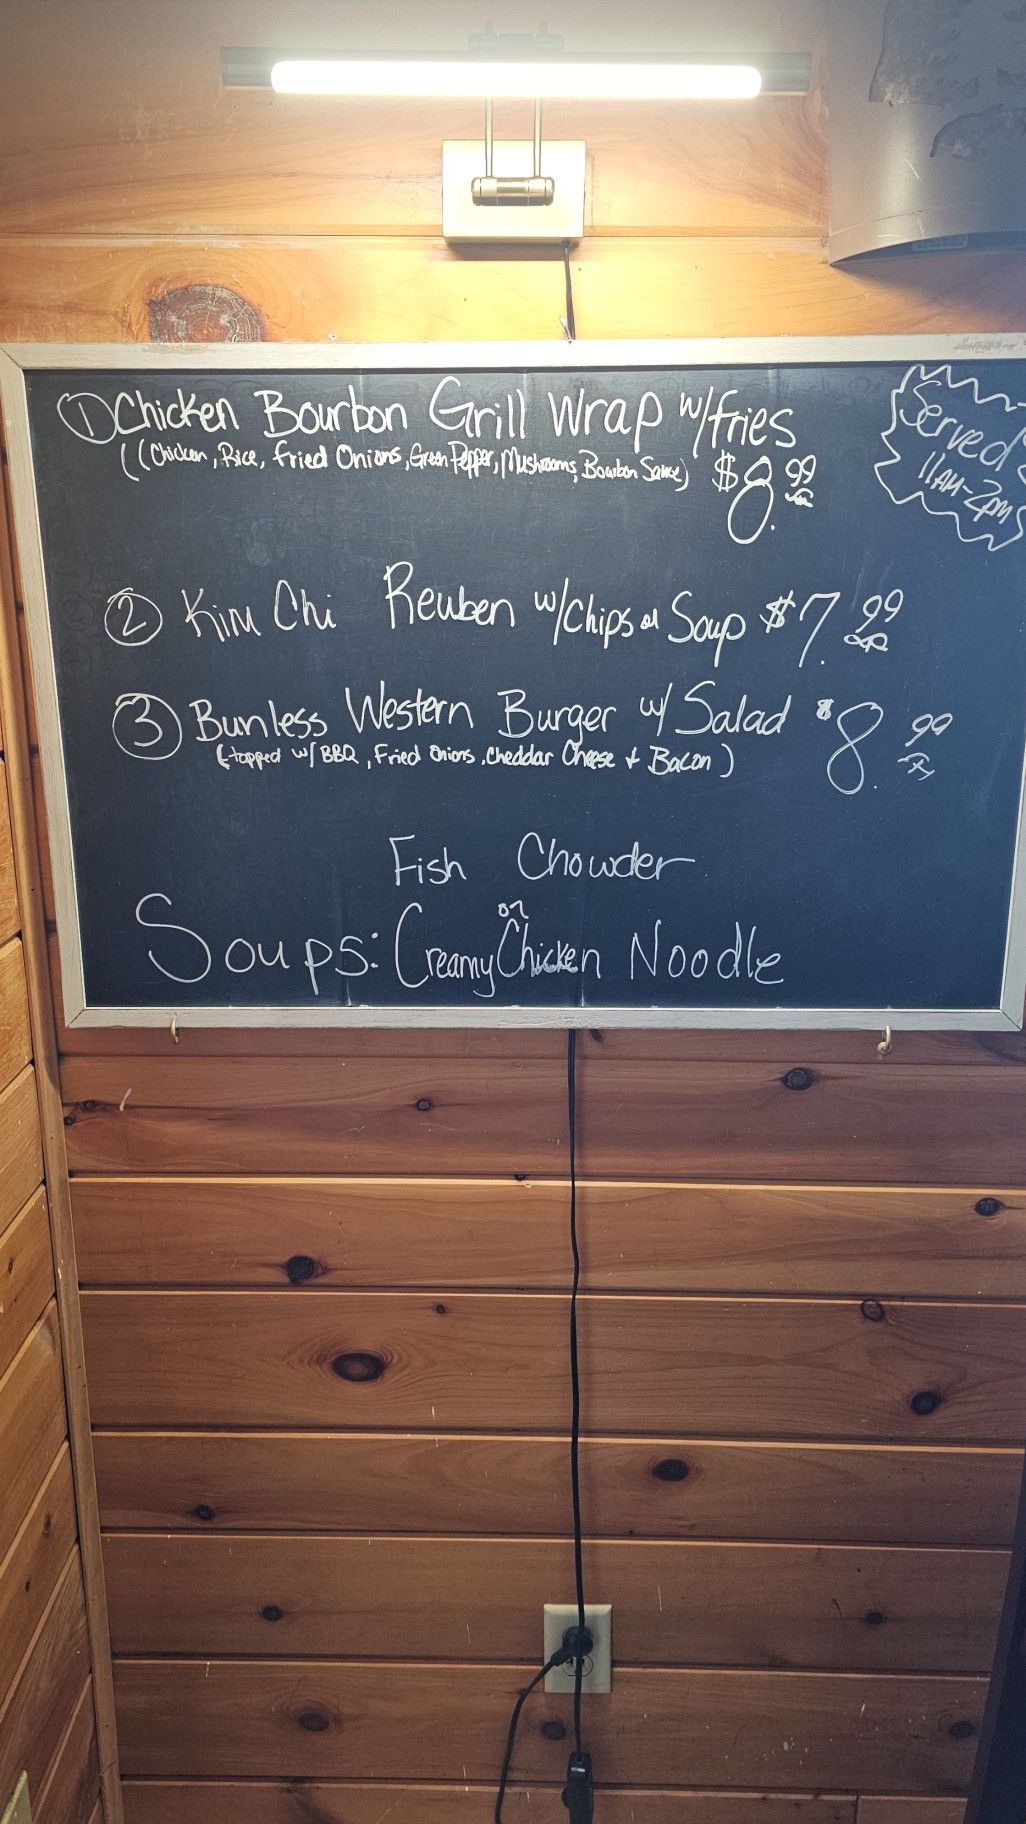 ① Chicken Bourbon Grill Wrap w/fries
((Chicken, Rice, Fried Onions, Green Pepper, Mushrooms, Bourbon Sauce) $8.99
Served
11AM-2pm
② Kim Chi Reuben w/Chips or Soup $7.99
③ Bunless Western Burger w/ Salad $8.99
(topped w/ BBQ, Fried Onions, Cheddar Cheese + Bacon)
Fish Chowder
or
Soups: Creamy Chicken Noodle